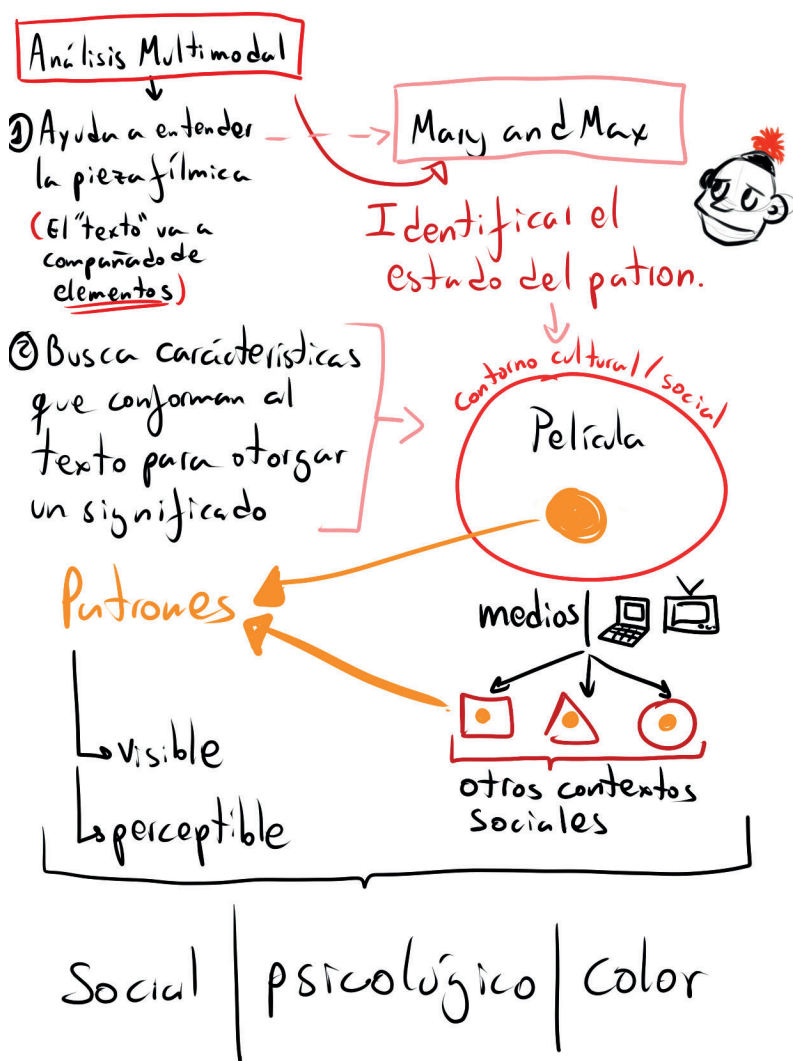 Análisis Multimodal
① Ayuda a entender
la pieza fílmica
(El "texto" va a
compañado de
elementos)
Mary and Max
Identificar el
estado del patron.
② Busca carácterísticas
que conforman al
texto para otorgar
un significado
contorno cultural / social
Película
Patrones
medios
visible
perceptible
otros contextos
sociales
Social | psicológico | Color